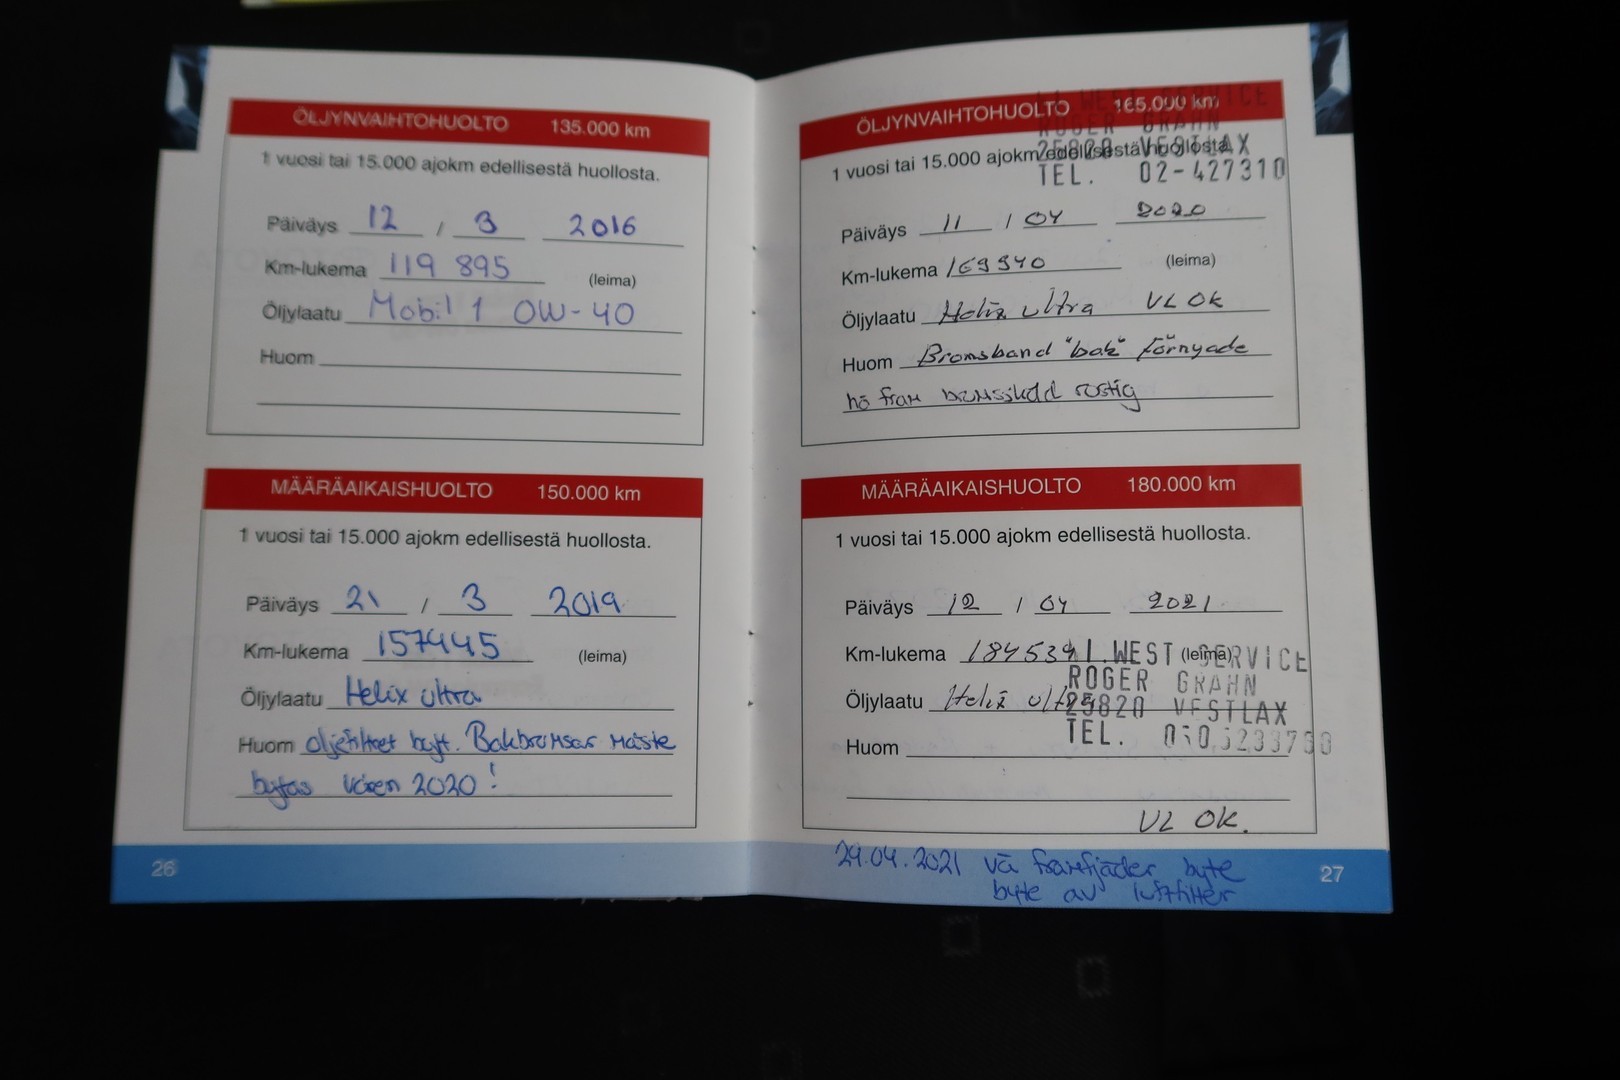 ÖLJYNVAIHTOHUOLTO 135.000 km
1 vuosi tai 15.000 ajokm edellisestä huollosta.
Päiväys 12 / 3 2016
Km-lukema 119 895 (leima)
Öljylaatu Mobil 1 0W-40
Huom
MÄÄRÄAIKAISHUOLTO 150.000 km
1 vuosi tai 15.000 ajokm edellisestä huollosta.
Päiväys 21 / 3 2019
Km-lukema 157445 (leima)
Öljylaatu Helix ultra
Huom oljefiltret bytt. Bakbromsar måste
bytas våren 2020!
26
ÖLJYNVAIHTOHUOLTO 165.000 km
WEST SERVICE
ROGER GRAHN
1 vuosi tai 15.000 ajokm edellisestä huollosta.
25820 VESTLAX
TEL. 02-427310
Päiväys 11 / 04 2020
Km-lukema 169940 (leima)
Öljylaatu Helix ultra VL OK
Huom Bromsband "bak" förnyade
hö fram bromssköld rostig
MÄÄRÄAIKAISHUOLTO 180.000 km
1 vuosi tai 15.000 ajokm edellisestä huollosta.
Päiväys 12 / 04 2021
Km-lukema 184534 (leima)
WEST SERVICE
ROGER GRAHN
Öljylaatu Helix ultra
25820 VESTLAX
TEL. 050,5233730
Huom
VL OK.
29.04.2021 vä framfjäder byte
byte av luftfilter
27